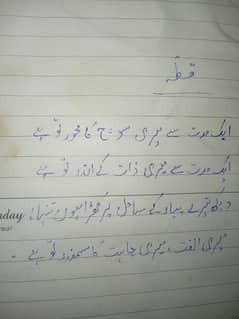 قطعہ
ایک مدت سے میری سوچ کا محور تو ہے
ایک مدت سے میری ذات کے اندر تو ہے
دیکھ تیرے پیار کے ساحل پر کھڑا ہوں تنہا
میری الفت، میری چاہت کا سمندر تو ہے۔
nday